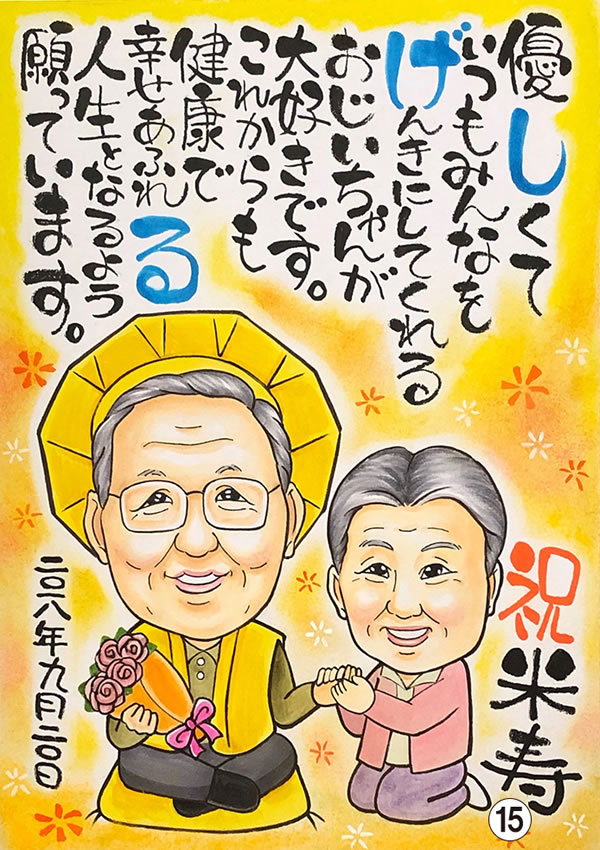 優しくて
いつもみんなを
げんきにしてくれる
おじいちゃんが
大好きです。
これからも
健康で
幸せあふれる
人生となるよう
願っています。
祝米寿
二〇一八年九月二〇日
15